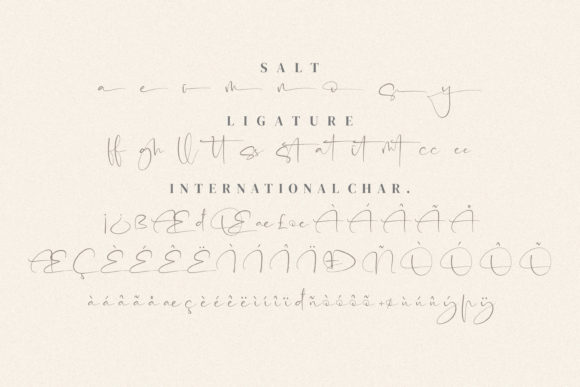 SALT
a e r m n o s y
LIGATURE
ff gh ll tt ss st at it mt cc ee
INTERNATIONAL CHAR.
¡ ¿ ß Æ đ Œ æ £ œ À Á Â Ã Å
Æ Ç È É Ê Ë Ì Í Î Ï Đ Ñ Ò Ó Ô Õ
à á â ã å æ ç è é ê ë ì í î ï đ ñ ò ó ô õ ÷ ø ù ú û ý þ ÿ